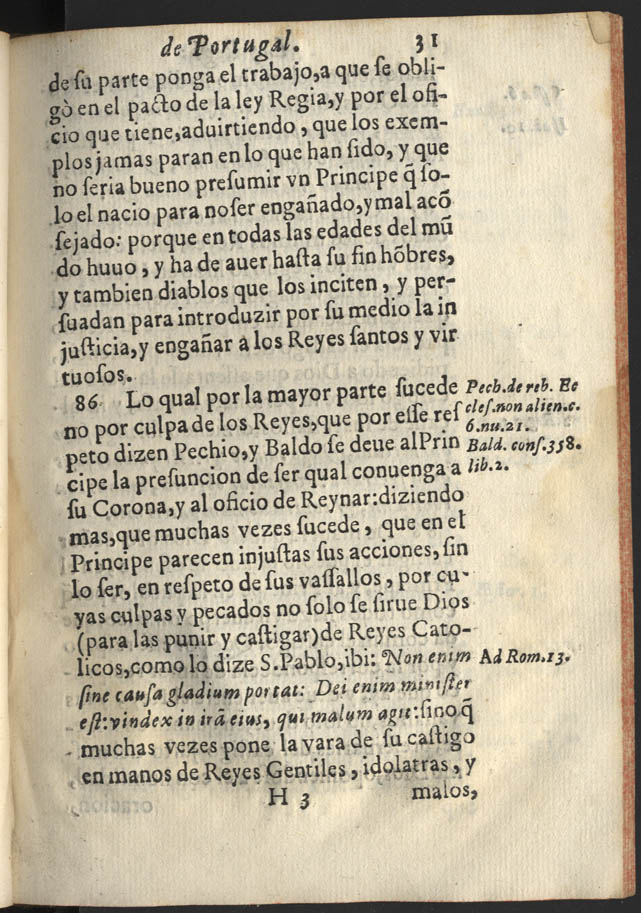 de Portugal. 31
de su parte ponga el trabajo,a que se obli-
gò en el pacto de la ley Regia,y por el ofi-
cio que tiene,aduirtiendo, que los exem-
plos jamas paran en lo que han sido, y que
no seria bueno presumir vn Principe q̃ so-
lo el nacio para no ser engañado,y mal acõ
sejado: porque en todas las edades del mũ
do huuo, y ha de auer hasta su fin hõbres,
y tambien diablos que los inciten, y per-
suadan para introduzir por su medio la in
justicia,y engañar a los Reyes santos y vir
tuosos.
86 Lo qual por la mayor parte sucede
no por culpa de los Reyes,que por esse res
peto dizen Pechio,y Baldo se deue al Prin
cipe la presuncion de ser qual conuenga a
su Corona,y al oficio de Reynar:diziendo
mas,que muchas vezes sucede, que en el
Principe parecen injustas sus acciones, sin
lo ser, en respeto de sus vassallos, por cu-
yas culpas y pecados no solo se sirue Dios
(para las punir y castigar)de Reyes Cato-
licos,como lo dize S.Pablo,ibi: Non enim
sine causa gladium portat: Dei enim minister
est:vindex in irã eius, qui malum agit:sino q̃
muchas vezes pone la vara de su castigo
en manos de Reyes Gentiles, idolatras, y
H 3 malos,
Pech.de reb. Ec
cles.non alien.c.
6.nu.21.
Bald. cons.358.
lib.2.
Ad Rom.13.